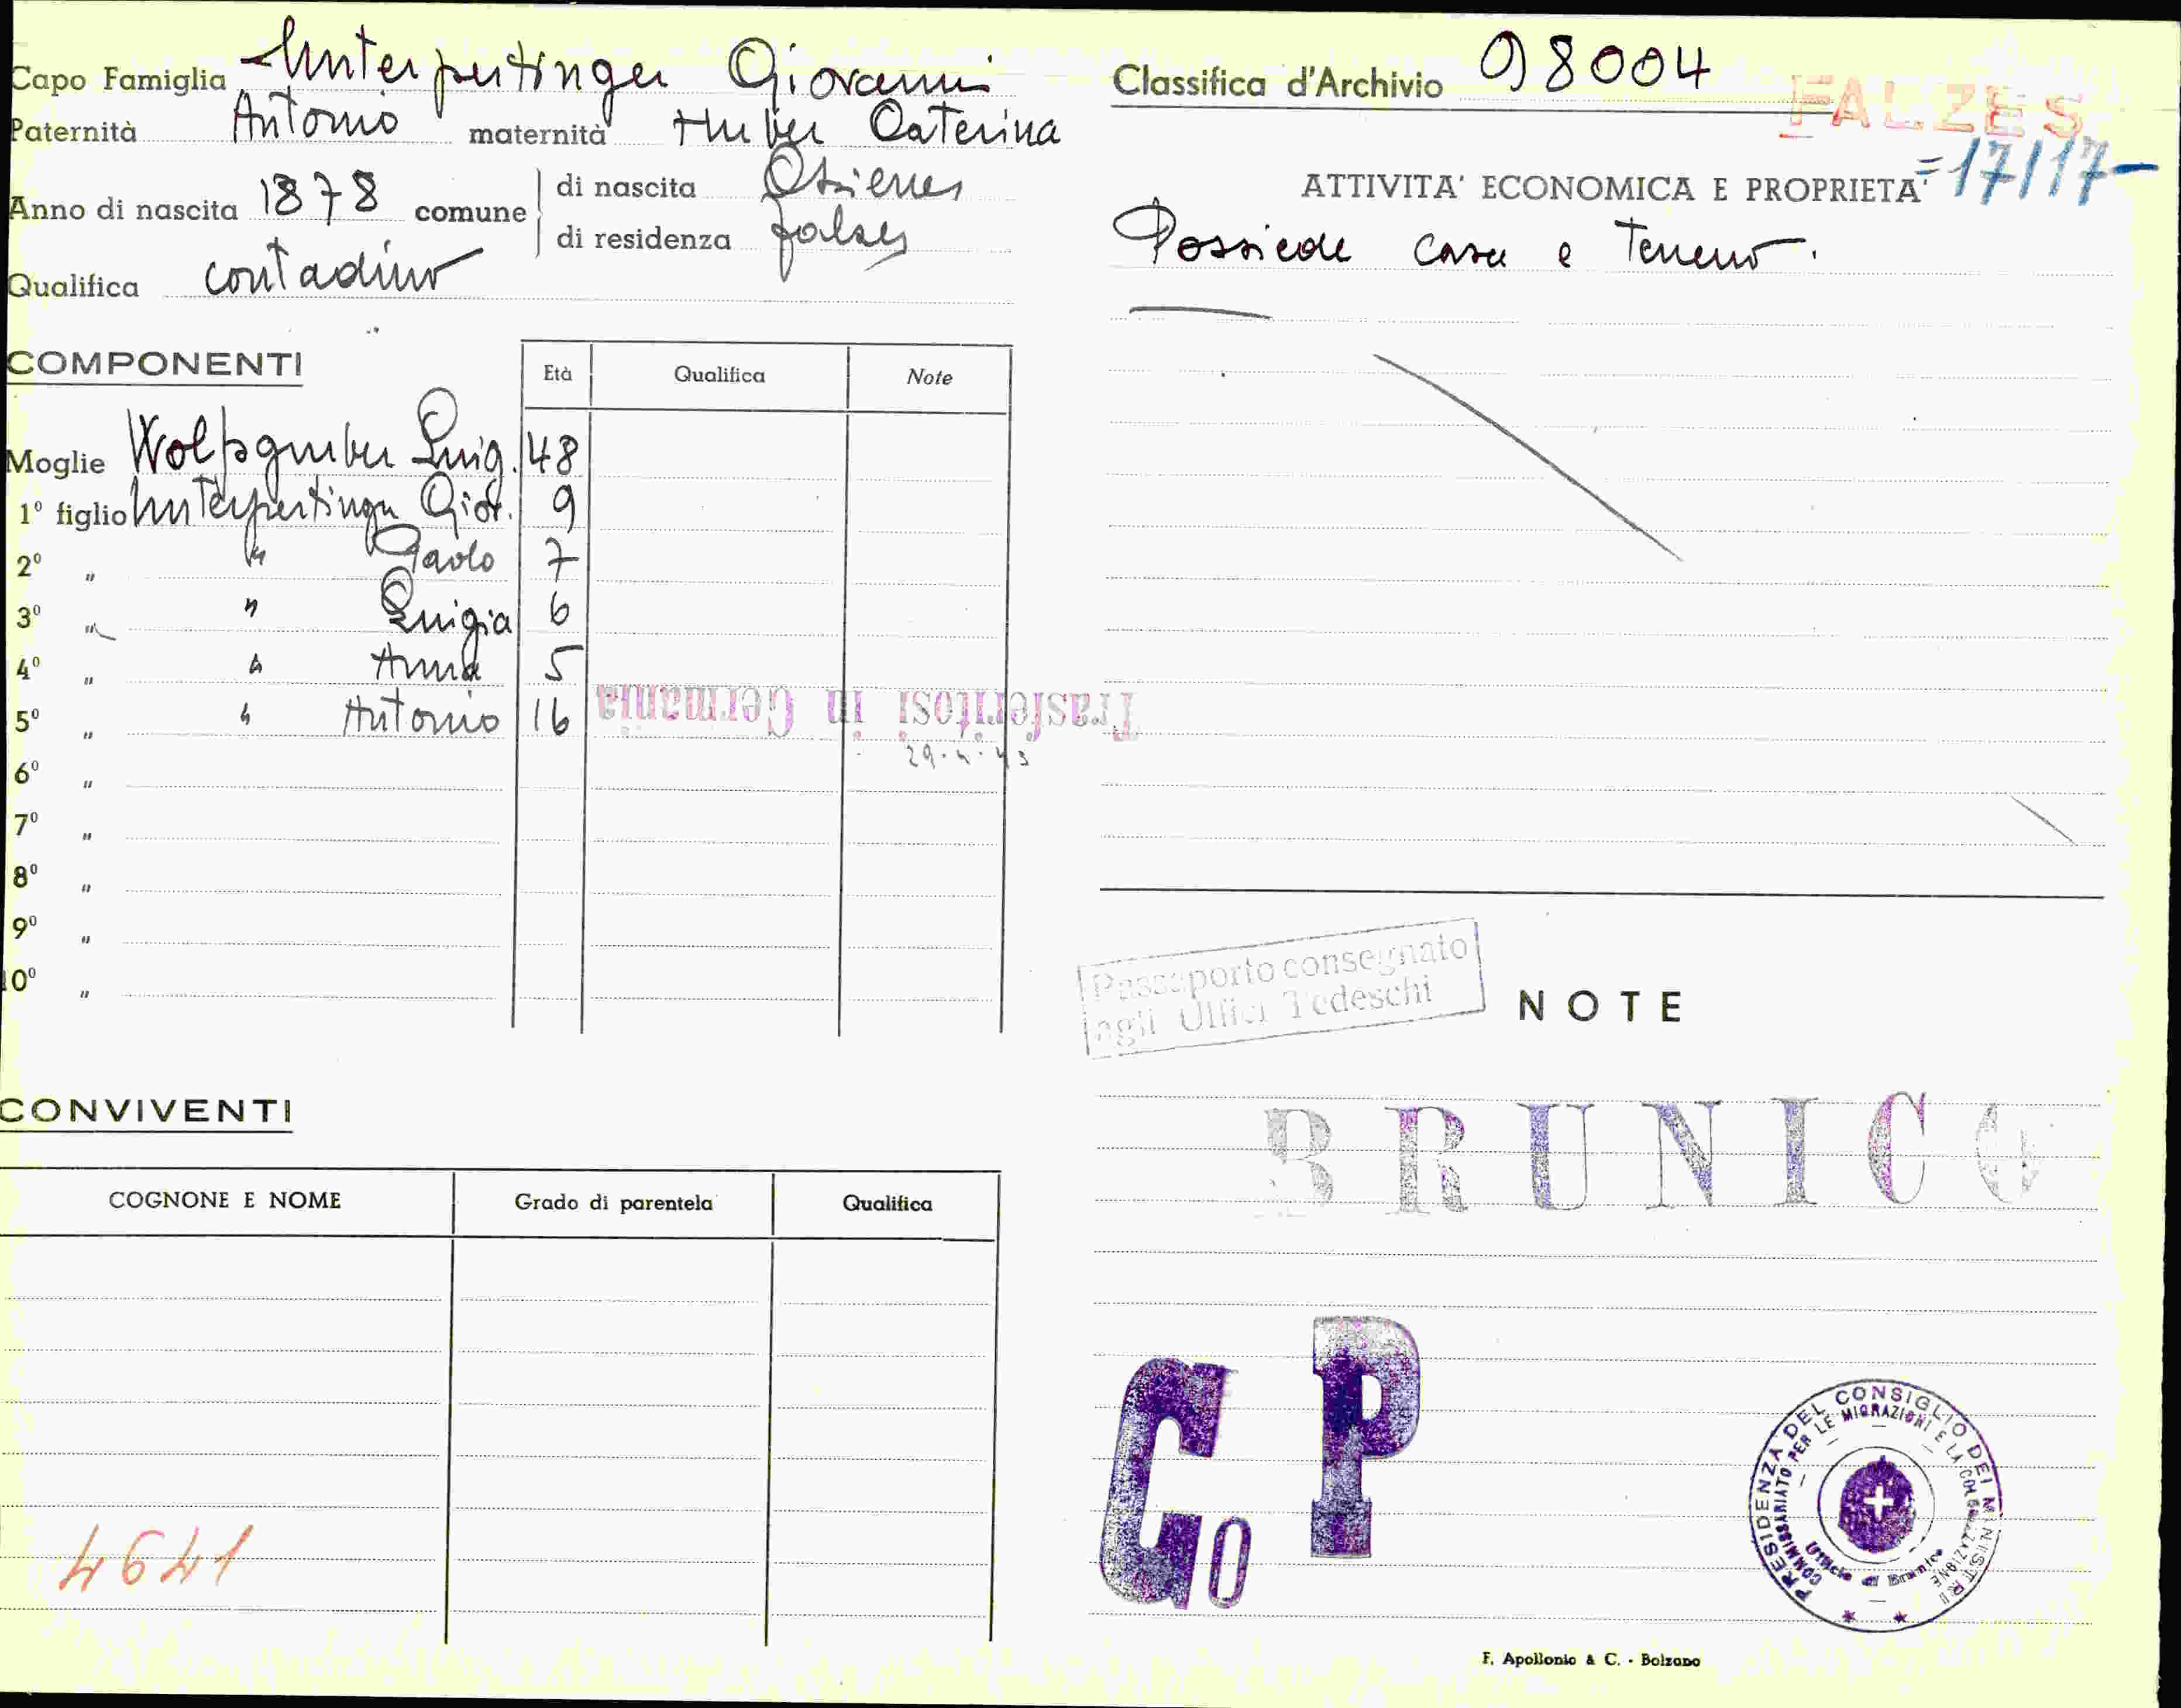 Capo Famiglia Unterpertinger Giovanni
Paternità Antonio maternità Huber Caterina
Anno di nascita 1878 comune di nascita
di residenza Falzes
Qualifica contadino
COMPONENTI
Età Qualifica Note
Moglie Wolfsgruber Luig. 48
1º figlio Unterpertinger Giov. 9
2º " " Paolo 7
3º " " Luigia 6
4º " " Anna 5
5º " " Antonio 16
Trasferitosi in Germania
29.4.43
6º "
7º "
8º "
9º "
10º "
CONVIVENTI
COGNONE E NOME Grado di parentela Qualifica
4641
Classifica d'Archivio 98004
FALZES
=17/17-
ATTIVITA' ECONOMICA E PROPRIETA'
Possiede casa e terreno.
Passaporto consegnato
agli Uffici Tedeschi
NOTE
BRUNICO
P
Go
PRESIDENZA DEL CONSIGLIO DEI MINISTRI
COMMISSARIATO PER LE MIGRAZIONI E LA COLONIZZAZIONE
Ufficio di Brunico
F. Apollonio & C. - Bolzano